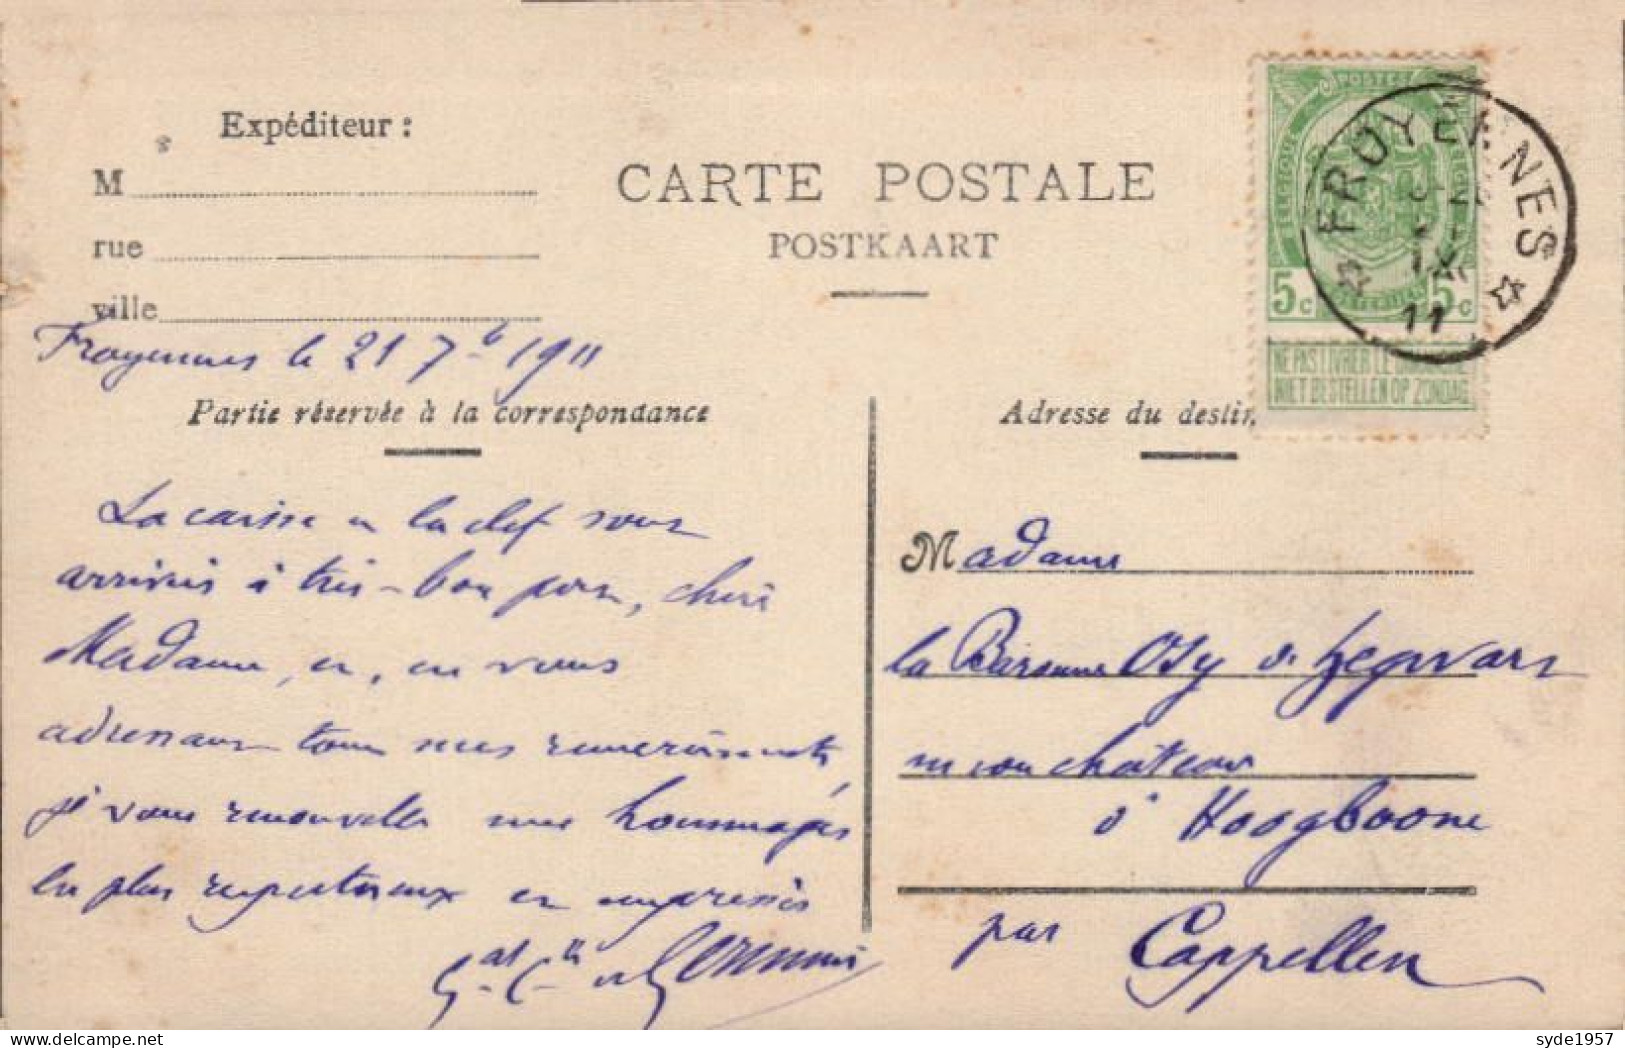 Expéditeur :
M
rue
ville
CARTE POSTALE
POSTKAART
POSTES
BELGIQUE
5c 5c
NE PAS LIVRER LE
NIET BESTELLEN OP ZONDAG
FROYENNES
11
Froyennes le 21 7b 1911
Partie réservée à la correspondance
Adresse du destin
La caisse et la clef sont
arrivés à très-bon port, chère
Madame, et, en vous
adressant tous mes remerciements
je vous renouvelle mes hommages
les plus respectueux et empressés
Gal Cte de Germiny
Madame
la Baronne Osy de Zegwart
en son château
d' Hoogboome
par Cappellen
syde1957